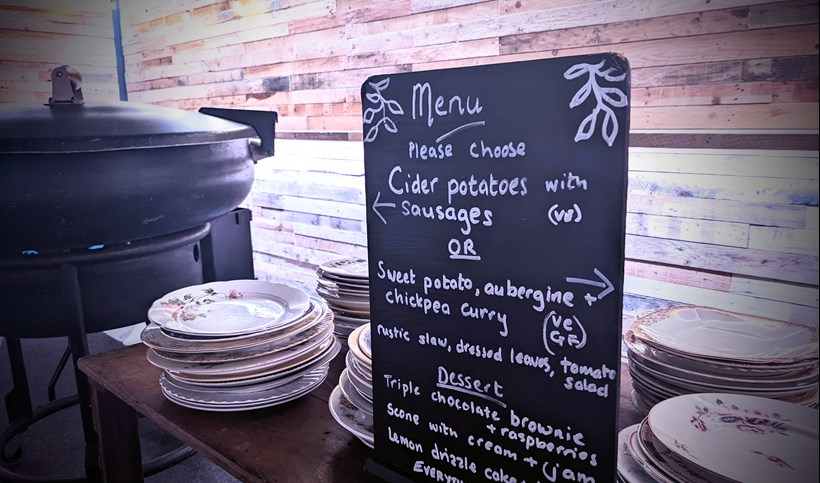 Menu
Please choose
Cider potatoes with
← Sausages (ve)
OR
Sweet potato, aubergine + →
chickpea curry (VE GF)
rustic slaw, dressed leaves, tomato
salad
Dessert
Triple chocolate brownie
+ raspberries
Scone with cream + jam
Lemon drizzle cake